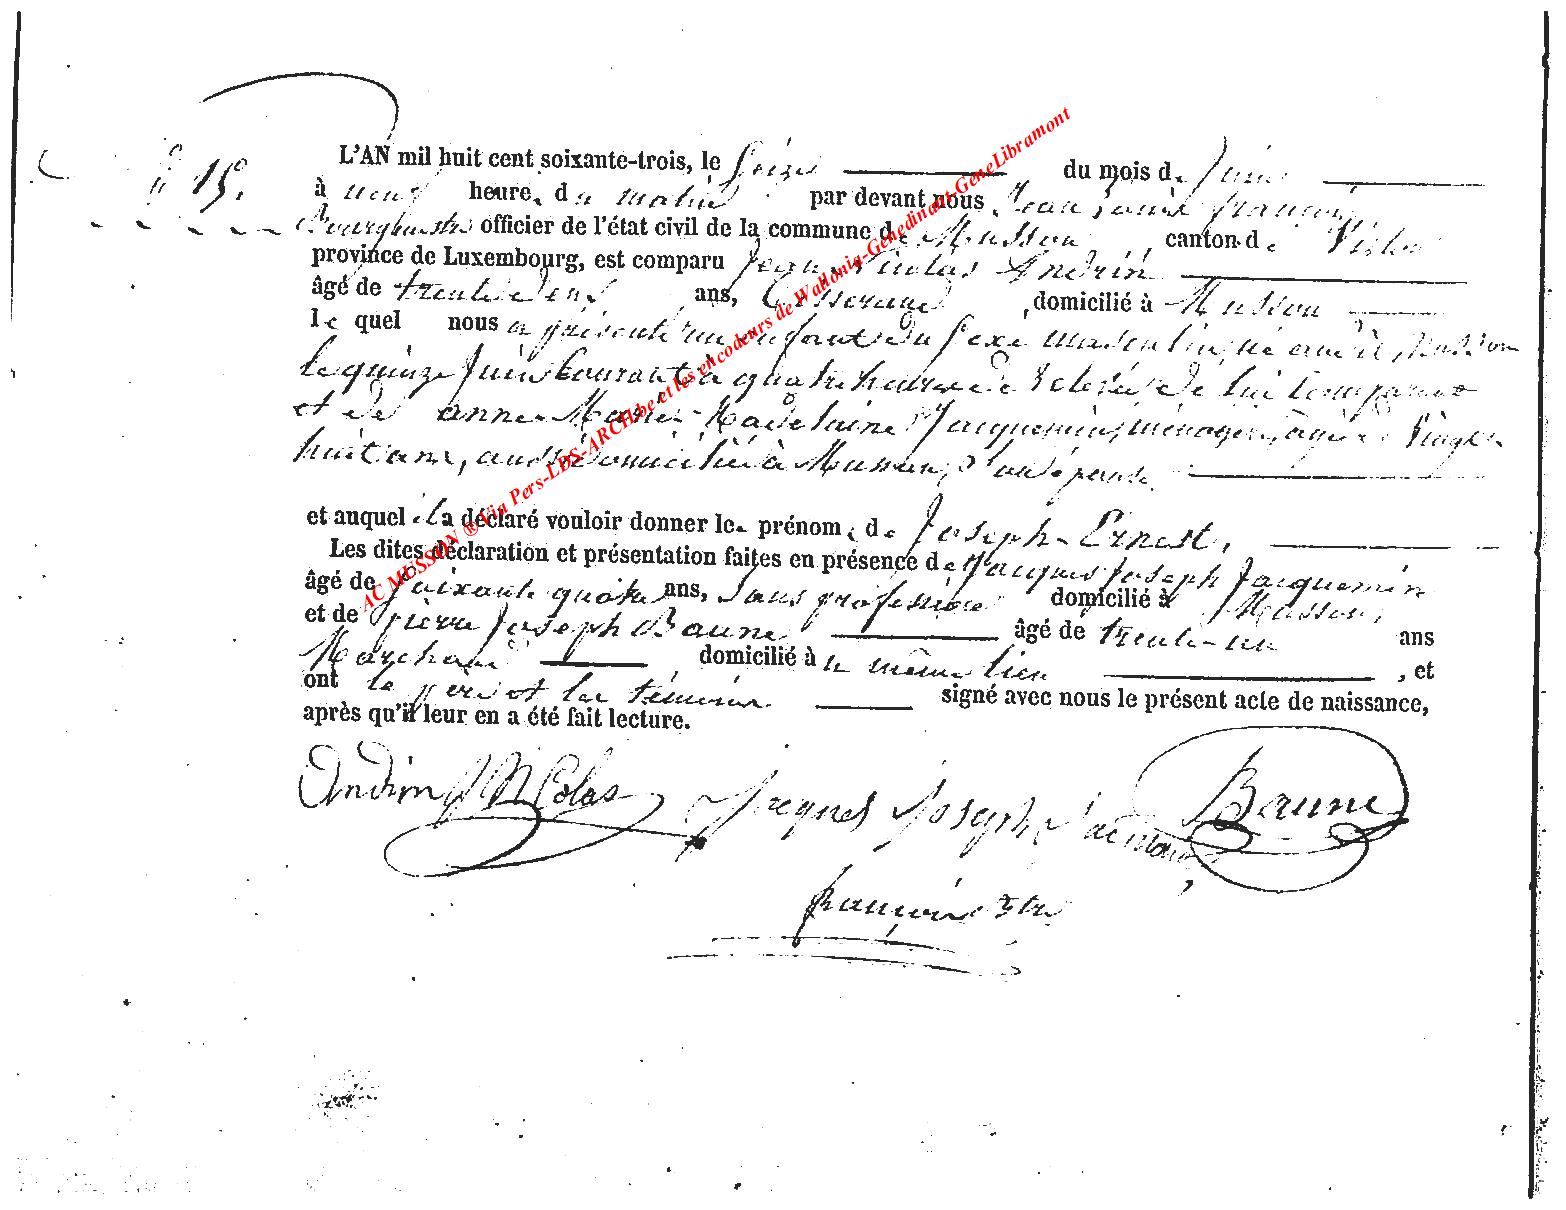 n° 15.
L'AN mil huit cent soixante-trois, le Seize du mois de Juin
à neuf heures du matin par devant nous Jean Louis François,
Bourgmestre officier de l'état civil de la commune de Musson, canton de Virton
province de Luxembourg, est comparu Jean Nicolas Andrin
âgé de trente deux ans, domicilié à Musson
le quel nous a présenté un enfant du sexe masculin, né à Musson
le quinze Juin Courant à quatre heures de relevée, de lui Comparant
et de anne Marie Madelaine Jacquemin, ménagère, agée de Vingt
huit ans, aussi domiciliée à Musson, son épouse
et auquel il a déclaré vouloir donner les prénoms de Joseph-Ernest,
Les dites déclaration et présentation faites en présence de Jacques Joseph Jacquemin
âgé de Soixante quatre ans, sans profession domicilié à Musson,
et de Pierre Joseph Baune âgé de trente-un ans
Marchand domicilié au même lieu, et
ont le père et les témoins signé avec nous le présent acte de naissance,
après qu'il leur en a été fait lecture.
Andrin J Nicolas Jacques Joseph Jacquemin Baune
François
AC MUSSON ® Via Pers-LDS-ARCH.be et les encodeurs de Wallonia-Genedinant-GeneLibramont